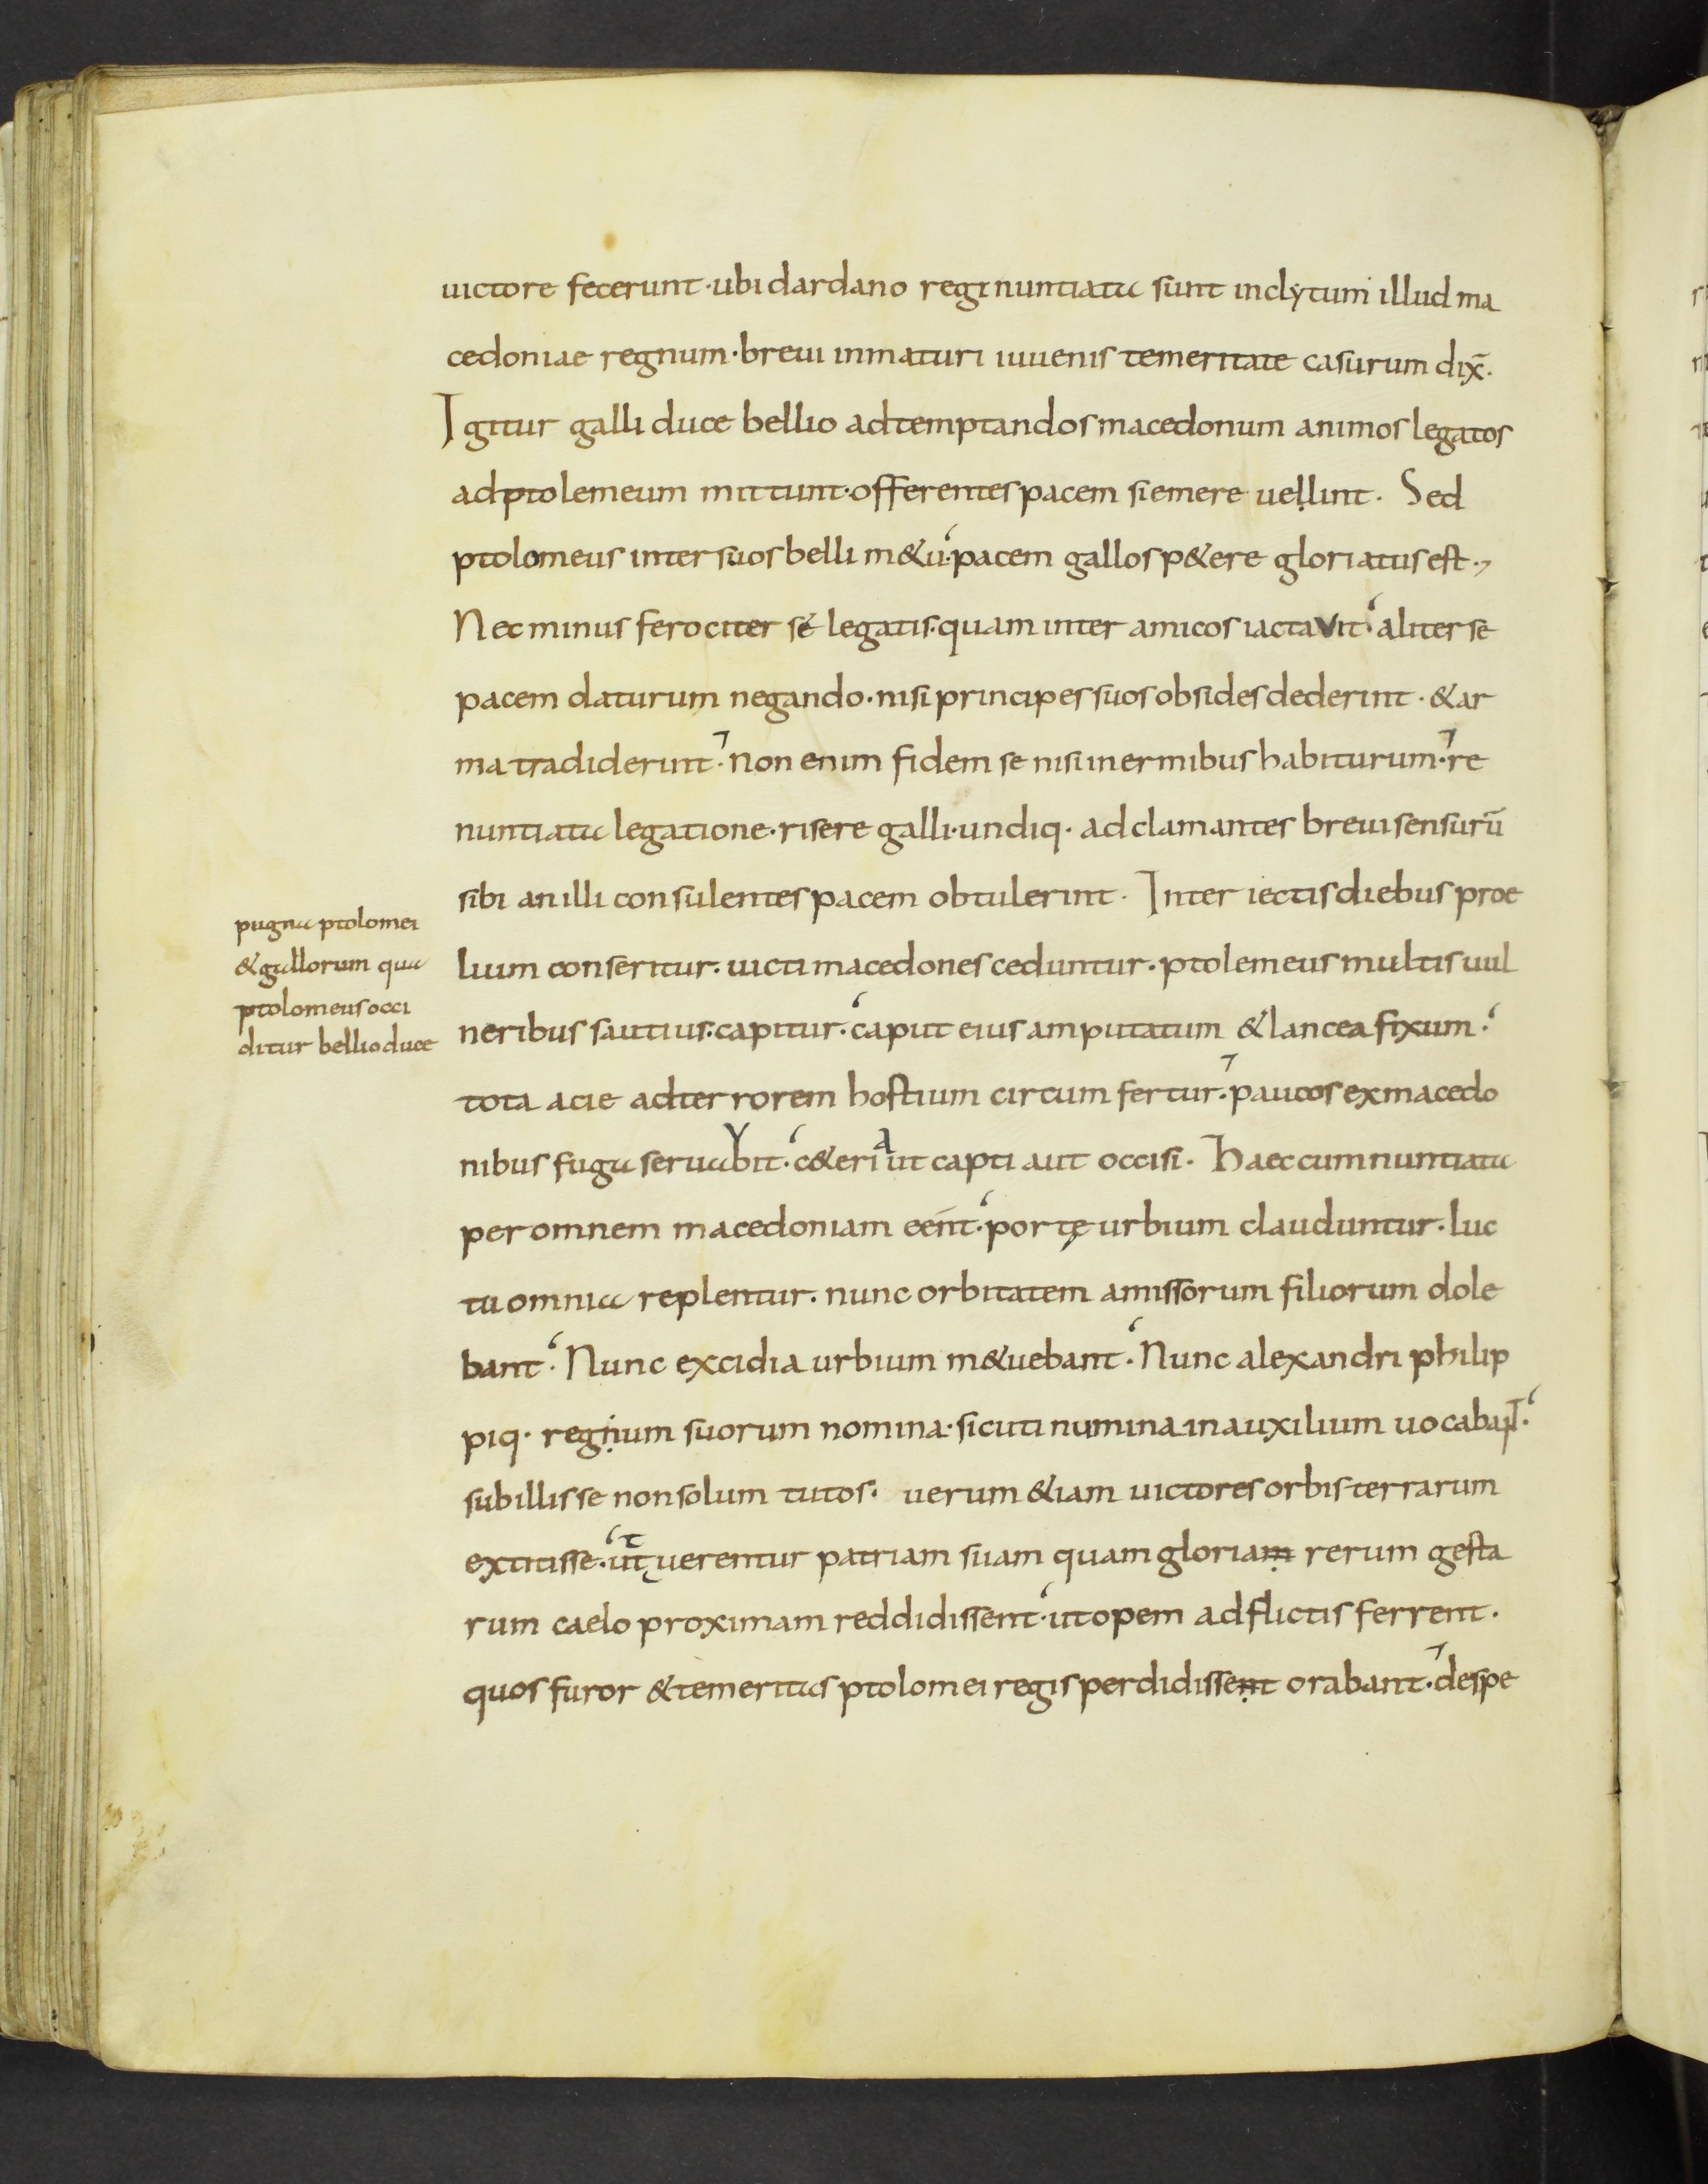 uictore fecerunt · ubi dardano regi nuntiata sunt inclytum illud ma
cedoniae regnum · breui inmaturi iuuenis temeritate casurum dix̄.
Igitur galli duce bellio adtemptandos macedonum animos legatos
ad ptolemeum mittunt · offerentes pacem si emere uellint. Sed
ptolomeus inter suos belli m&u · pacem gallos p&ere gloriatus est.,
Nec minus ferociter se legatis · quam inter amicos iactavit · aliter se
pacem daturum negando · nisi principes suos obsides dederint · & ar
ma tradiderint · non enim fidem se nisi inermibus habiturum · re
nuntiata legatione · risere galli · undiq· adclamantes breui sensurū
sibi an illi consulentes pacem obtulerint. Inter iectis diebus proe
pugna ptolomei
& gallorum qua
ptolomeus occi
ditur bellio duce
lium conseritur. uicti macedones ceduntur. ptolemeus multis uul
neribus sautius: capitur. caput eius amputatum & lancea fixum.
tota acie ad terrorem hostium circum fertur. paucos ex macedo
nibus fuga seruabit. c&eri aut capti aut occisi. Haec cum nuntiata
per omnem macedoniam eent̄. portę urbium clauduntur. luc
tu omnia replentur. nunc orbitatem amissorum filiorum dole
bant. Nunc excidia urbium m&uebant. Nunc alexandri philip
piq· regnium suorum nomina · sicuti numina in auxilium uocabant.
sub illis se non solum tutos. uerum &iam uictores orbis terrarum
extitisse. ut tuerentur patriam suam quam gloriam rerum gesta
rum caelo proximam reddidissent · ut opem adflictis ferrent.
quos furor & temeritas ptolomei regis perdidissent orabant. despe